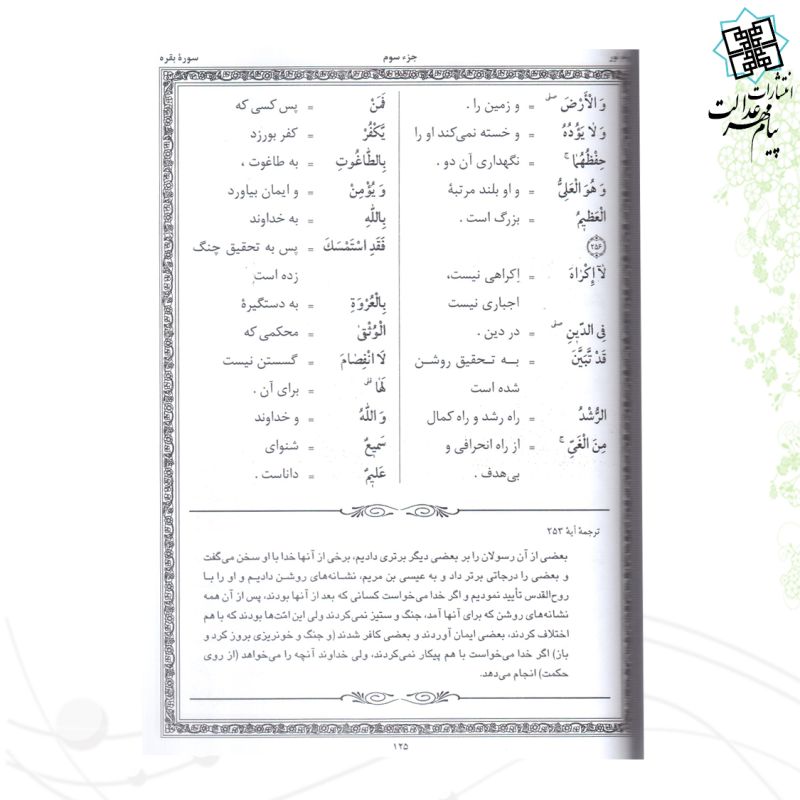 انتشارات
پیام مهر عدالت
جزء سوم
سورهٔ بقره
وَ الْأَرْضَ ۖ = و زمین را .
وَ لَا يَؤُدُهُ = و خسته نمی‌کند او را
حِفْظُهُمَا ۚ = نگهداری آن دو .
وَ هُوَ الْعَلِيُّ = و او بلند مرتبهٔ
الْعَظِيمُ = بزرگ است .
۲۵۶
لَا إِكْرَاهَ = اِکراهی نیست،
اجباری نیست
فِي الدِّينِ ۖ = در دین .
قَدْ تَّبَيَّنَ = به تحقیق روشن
شده است
الرُّشْدُ = راه رشد و راه کمال
مِنَ الْغَيِّ ۚ = از راه انحرافی و
بی‌هدف .
فَمَنْ = پس کسی که
يَّكْفُرْ = کفر بورزد
بِالطَّاغُوتِ = به طاغوت ،
وَ يُؤْمِنْ = و ایمان بیاورد
بِاللّٰهِ = به خداوند
فَقَدِ اسْتَمْسَكَ = پس به تحقیق چنگ
زده است
بِالْعُرْوَةِ = به دستگیرهٔ
الْوُثْقىٰ = محکمی که
لَا انْفِصَامَ = گسستن نیست
لَهَا ۗ = برای آن .
وَ اللّٰهُ = و خداوند
سَمِيعٌ = شنوای
عَلِيمٌ = داناست .
ترجمهٔ آیهٔ ۲۵۳
بعضی از آن رسولان را بر بعضی دیگر برتری دادیم، برخی از آنها خدا با او سخن می‌گفت
و بعضی را درجاتی برتر داد و به عیسی بن مریم، نشانه‌های روشن دادیم و او را با
روح‌القدس تأیید نمودیم و اگر خدا می‌خواست کسانی که بعد از آنها بودند، پس از آن همه
نشانه‌های روشن که برای آنها آمد، جنگ و ستیز نمی‌کردند ولی این امّت‌ها بودند که با هم
اختلاف کردند، بعضی ایمان آوردند و بعضی کافر شدند (و جنگ و خونریزی بروز کرد و
باز) اگر خدا می‌خواست با هم پیکار نمی‌کردند، ولی خداوند آنچه را می‌خواهد (از روی
حکمت) انجام می‌دهد.
۱۲۵